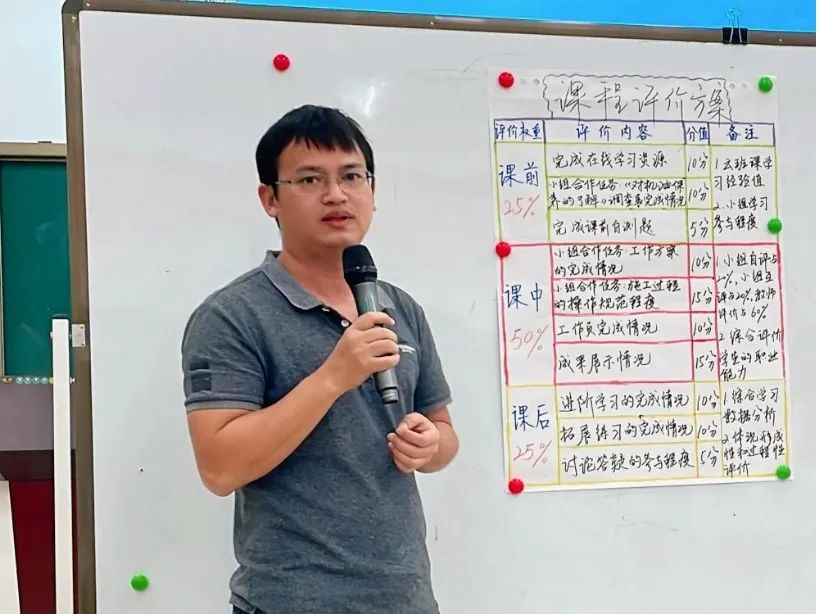 课程评价方案
评价权重 评价内容 分值 备注
课前
25%
完成在线学习资源 10分
小组合作任务《对机油保
养的了解》调查表完成情况 10分
完成课前自测题 5分
1.云班课学
习经验值
2.小组学习
参与程度
课中
50%
小组合作任务:工作方案
的完成情况 10分
小组合作任务:施工过程
的操作规范程度 15分
工作页完成情况 10分
成果展示情况 15分
1.小组自评占
20%,小组互
评占20%,教师
评价占60%
2.综合评价
学生的职业
能力
课后
25%
进阶学习的完成情况 10分
拓展练习的完成情况 10分
讨论答疑的参与程度 5分
1.综合学习
数据分析
2.体现形成
性和过程性
评价